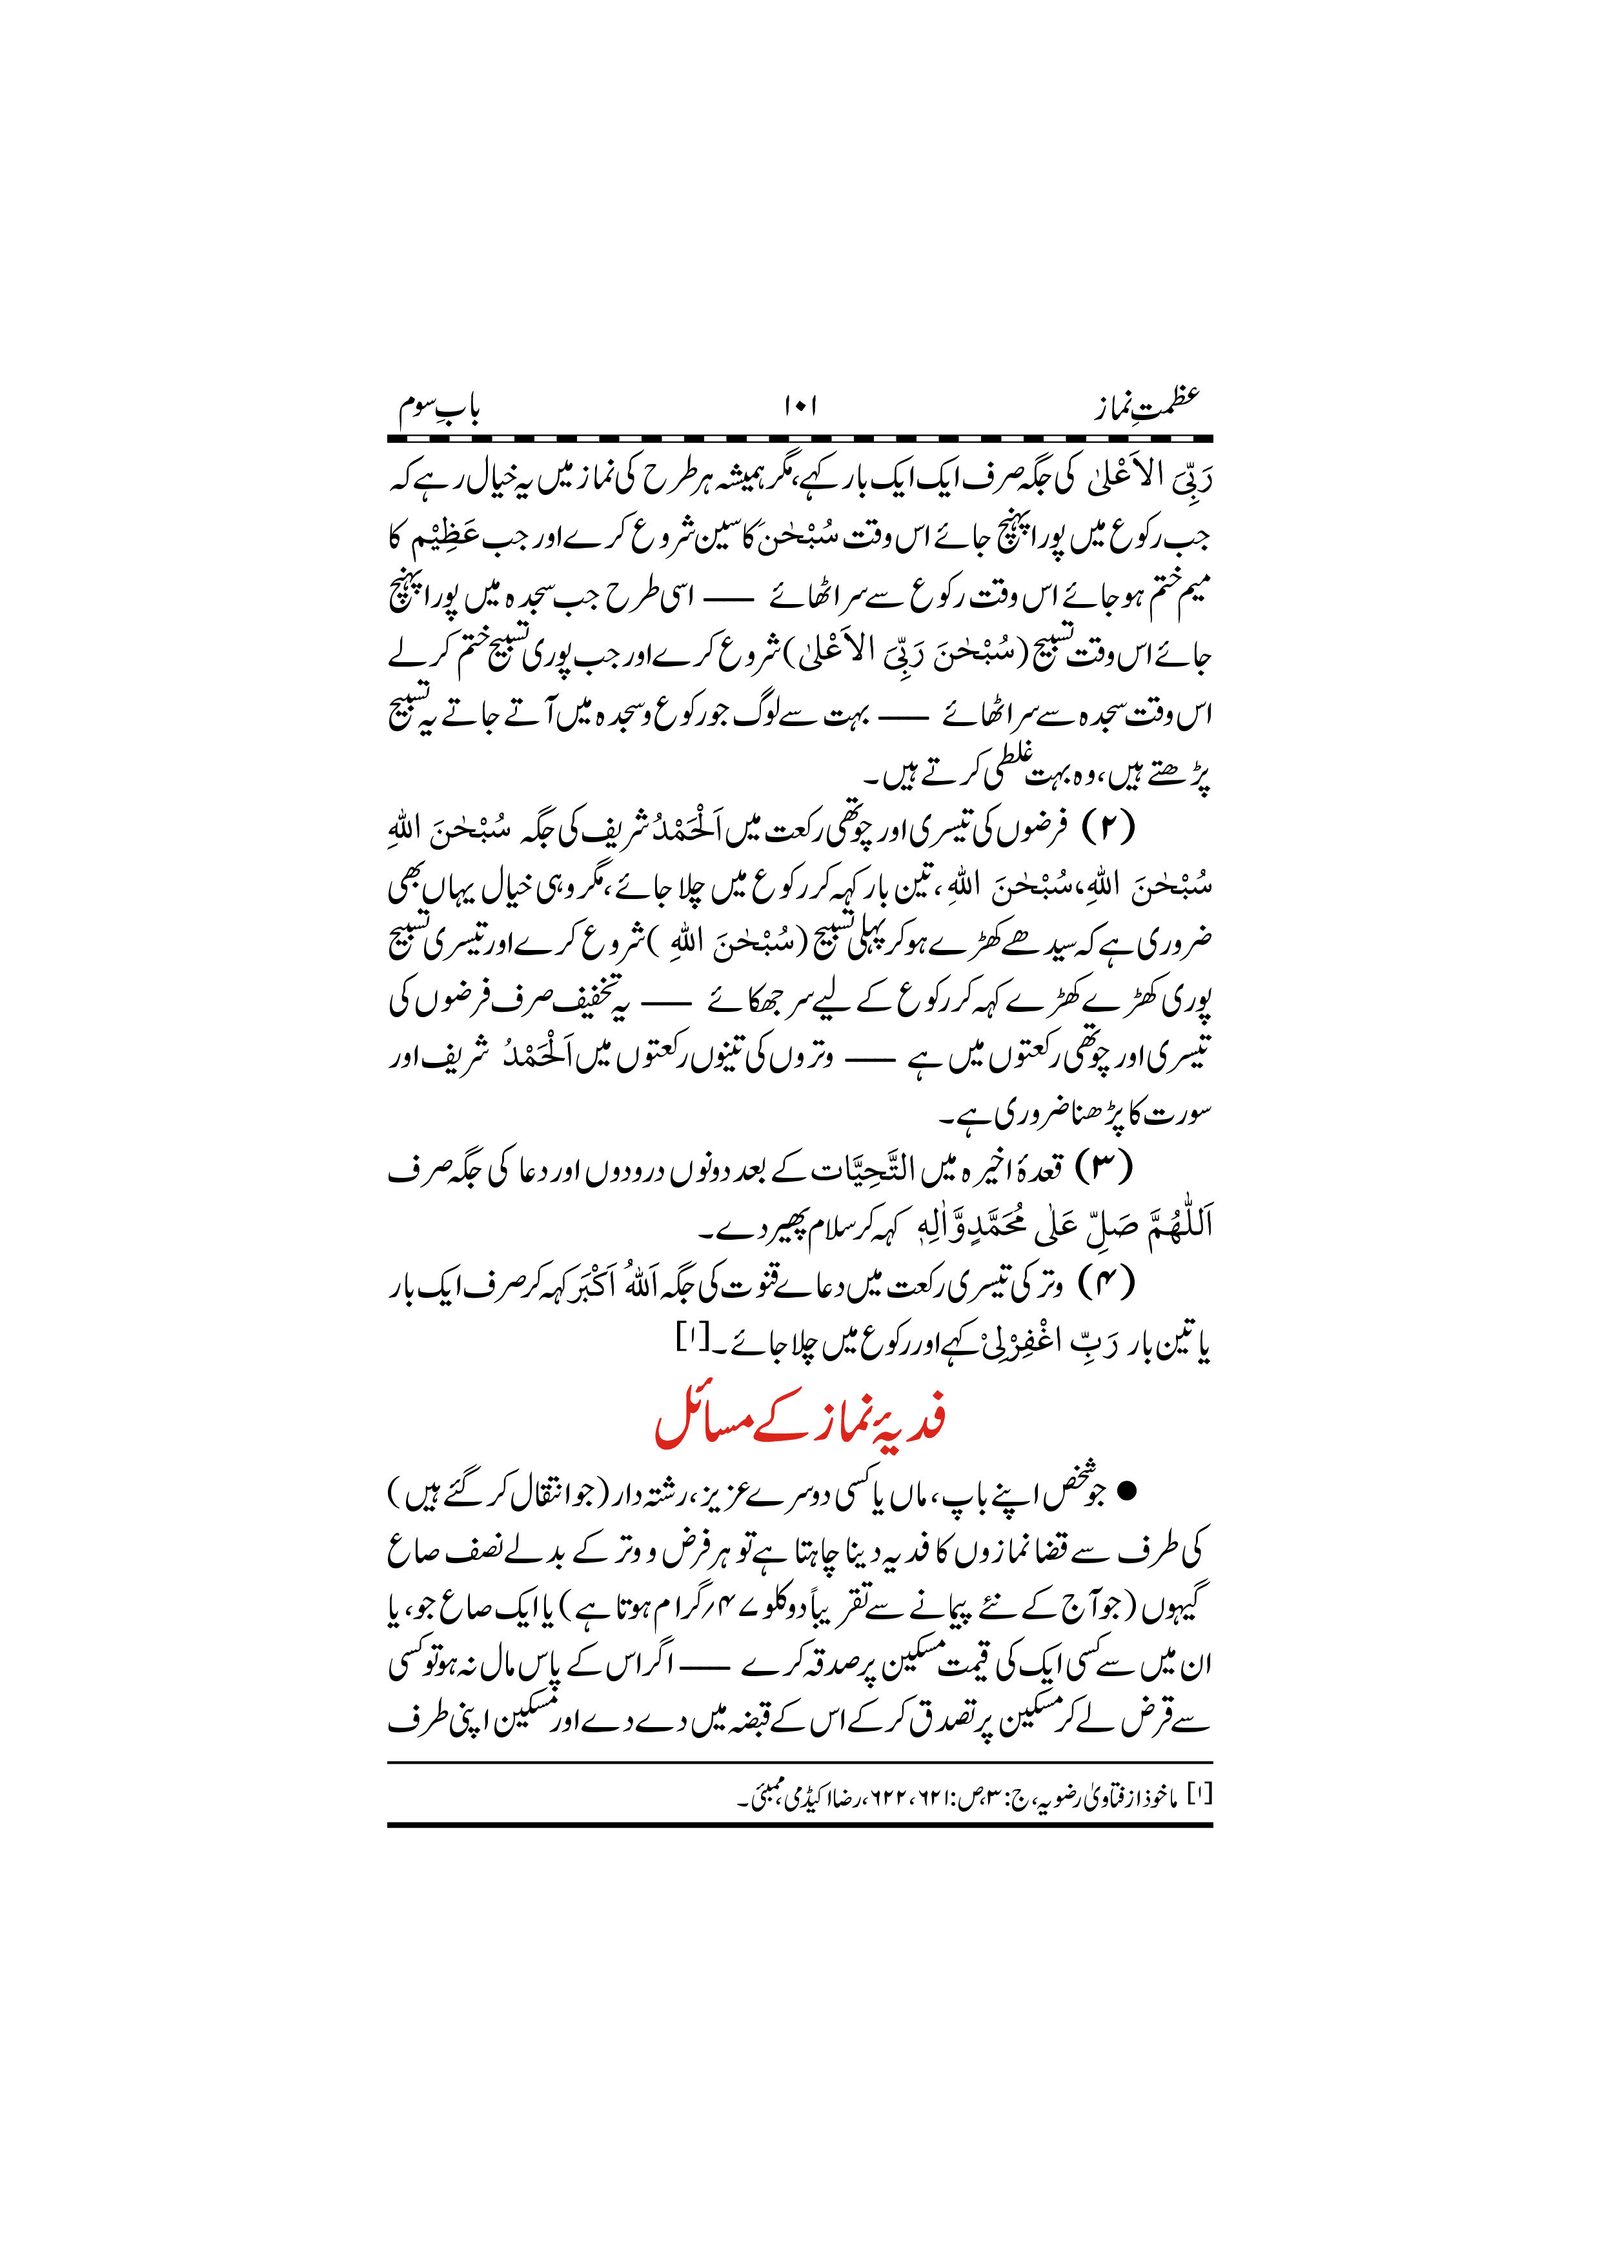 عظمتِ نماز ۱۰۱ بابِ سوم
رَبِّیَ الاَعْلیٰ کی جگہ صرف ایک ایک بار کہے، مگر ہمیشہ ہر طرح کی نماز میں یہ خیال رہے کہ
جب رکوع میں پورا پہنچ جائے اس وقت سُبْحٰنَ کا سین شروع کرے اور جب عَظِیْم کا
میم ختم ہو جائے اس وقت رکوع سے سر اٹھائے —— اسی طرح جب سجدہ میں پورا پہنچ
جائے اس وقت تسبیح (سُبْحٰنَ رَبِّیَ الاَعْلیٰ) شروع کرے اور جب پوری تسبیح ختم کر لے
اس وقت سجدہ سے سر اٹھائے —— بہت سے لوگ جو رکوع و سجدہ میں آتے جاتے یہ تسبیح
پڑھتے ہیں، وہ بہت غلطی کرتے ہیں۔
(۲) فرضوں کی تیسری اور چوتھی رکعت میں اَلْحَمْدُ شریف کی جگہ سُبْحٰنَ اللهِ
سُبْحٰنَ اللهِ، سُبْحٰنَ اللهِ، تین بار کہہ کر رکوع میں چلا جائے، مگر وہی خیال یہاں بھی
ضروری ہے کہ سیدھے کھڑے ہو کر پہلی تسبیح (سُبْحٰنَ اللهِ) شروع کرے اور تیسری تسبیح
پوری کھڑے کھڑے کہہ کر رکوع کے لیے سر جھکائے —— یہ تخفیف صرف فرضوں کی
تیسری اور چوتھی رکعتوں میں ہے —— وتروں کی تینوں رکعتوں میں اَلْحَمْدُ شریف اور
سورت کا پڑھنا ضروری ہے۔
(۳) قعدۂ اخیرہ میں التَّحِیَّات کے بعد دونوں درودوں اور دعا کی جگہ صرف
اَللّٰهُمَّ صَلِّ عَلٰی مُحَمَّدٍ وَّاٰلِهٖ کہہ کر سلام پھیر دے۔
(۴) وتر کی تیسری رکعت میں دعاے قنوت کی جگہ اَللهُ اَکْبَر کہہ کر صرف ایک بار
یا تین بار رَبِّ اغْفِرْلِیْ کہے اور رکوع میں چلا جائے۔[۱]
فدیۂ نماز کے مسائل
● جو شخص اپنے باپ، ماں یا کسی دوسرے عزیز، رشتہ دار (جو انتقال کر گئے ہیں)
کی طرف سے قضا نمازوں کا فدیہ دینا چاہتا ہے تو ہر فرض و وتر کے بدلے نصف صاع
گیہوں (جو آج کے نئے پیمانے سے تقریباً دو کلو ۴۷؍گرام ہوتا ہے) یا ایک صاع جو، یا
ان میں سے کسی ایک کی قیمت مسکین پر صدقہ کرے —— اگر اس کے پاس مال نہ ہو تو کسی
سے قرض لے کر مسکین پر تصدق کر کے اس کے قبضہ میں دے دے اور مسکین اپنی طرف
[۱] ماخوذ از فتاویٰ رضویہ، ج:۳، ص:۶۲۱، ۶۲۲، رضا اکیڈمی، ممبئی۔